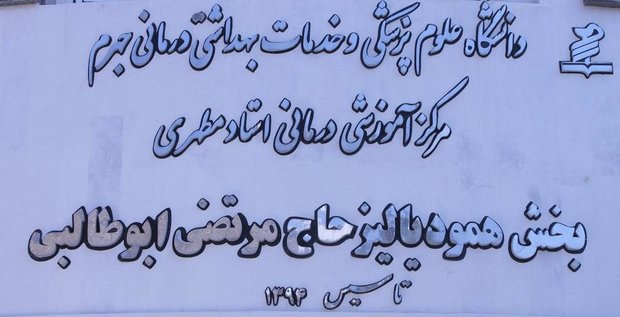 دانشگاه علوم پزشکی و خدمات بهداشتی درمانی جهرم
مرکز آموزشی درمانی استاد مطهری
بخش همودیالیز حاج مرتضی ابوطالبی
تاسیس ۱۳۹۳